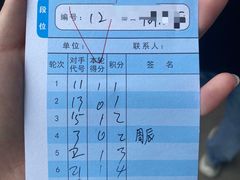 段位
编号: 12
单位: 联系人:
轮次 对手代号 本轮得分 积分 签名
1 11 1 1
2 13 0 1
3 15 1 2
4 3 0 2 周辰
5 2 1 3
6 21 1 4